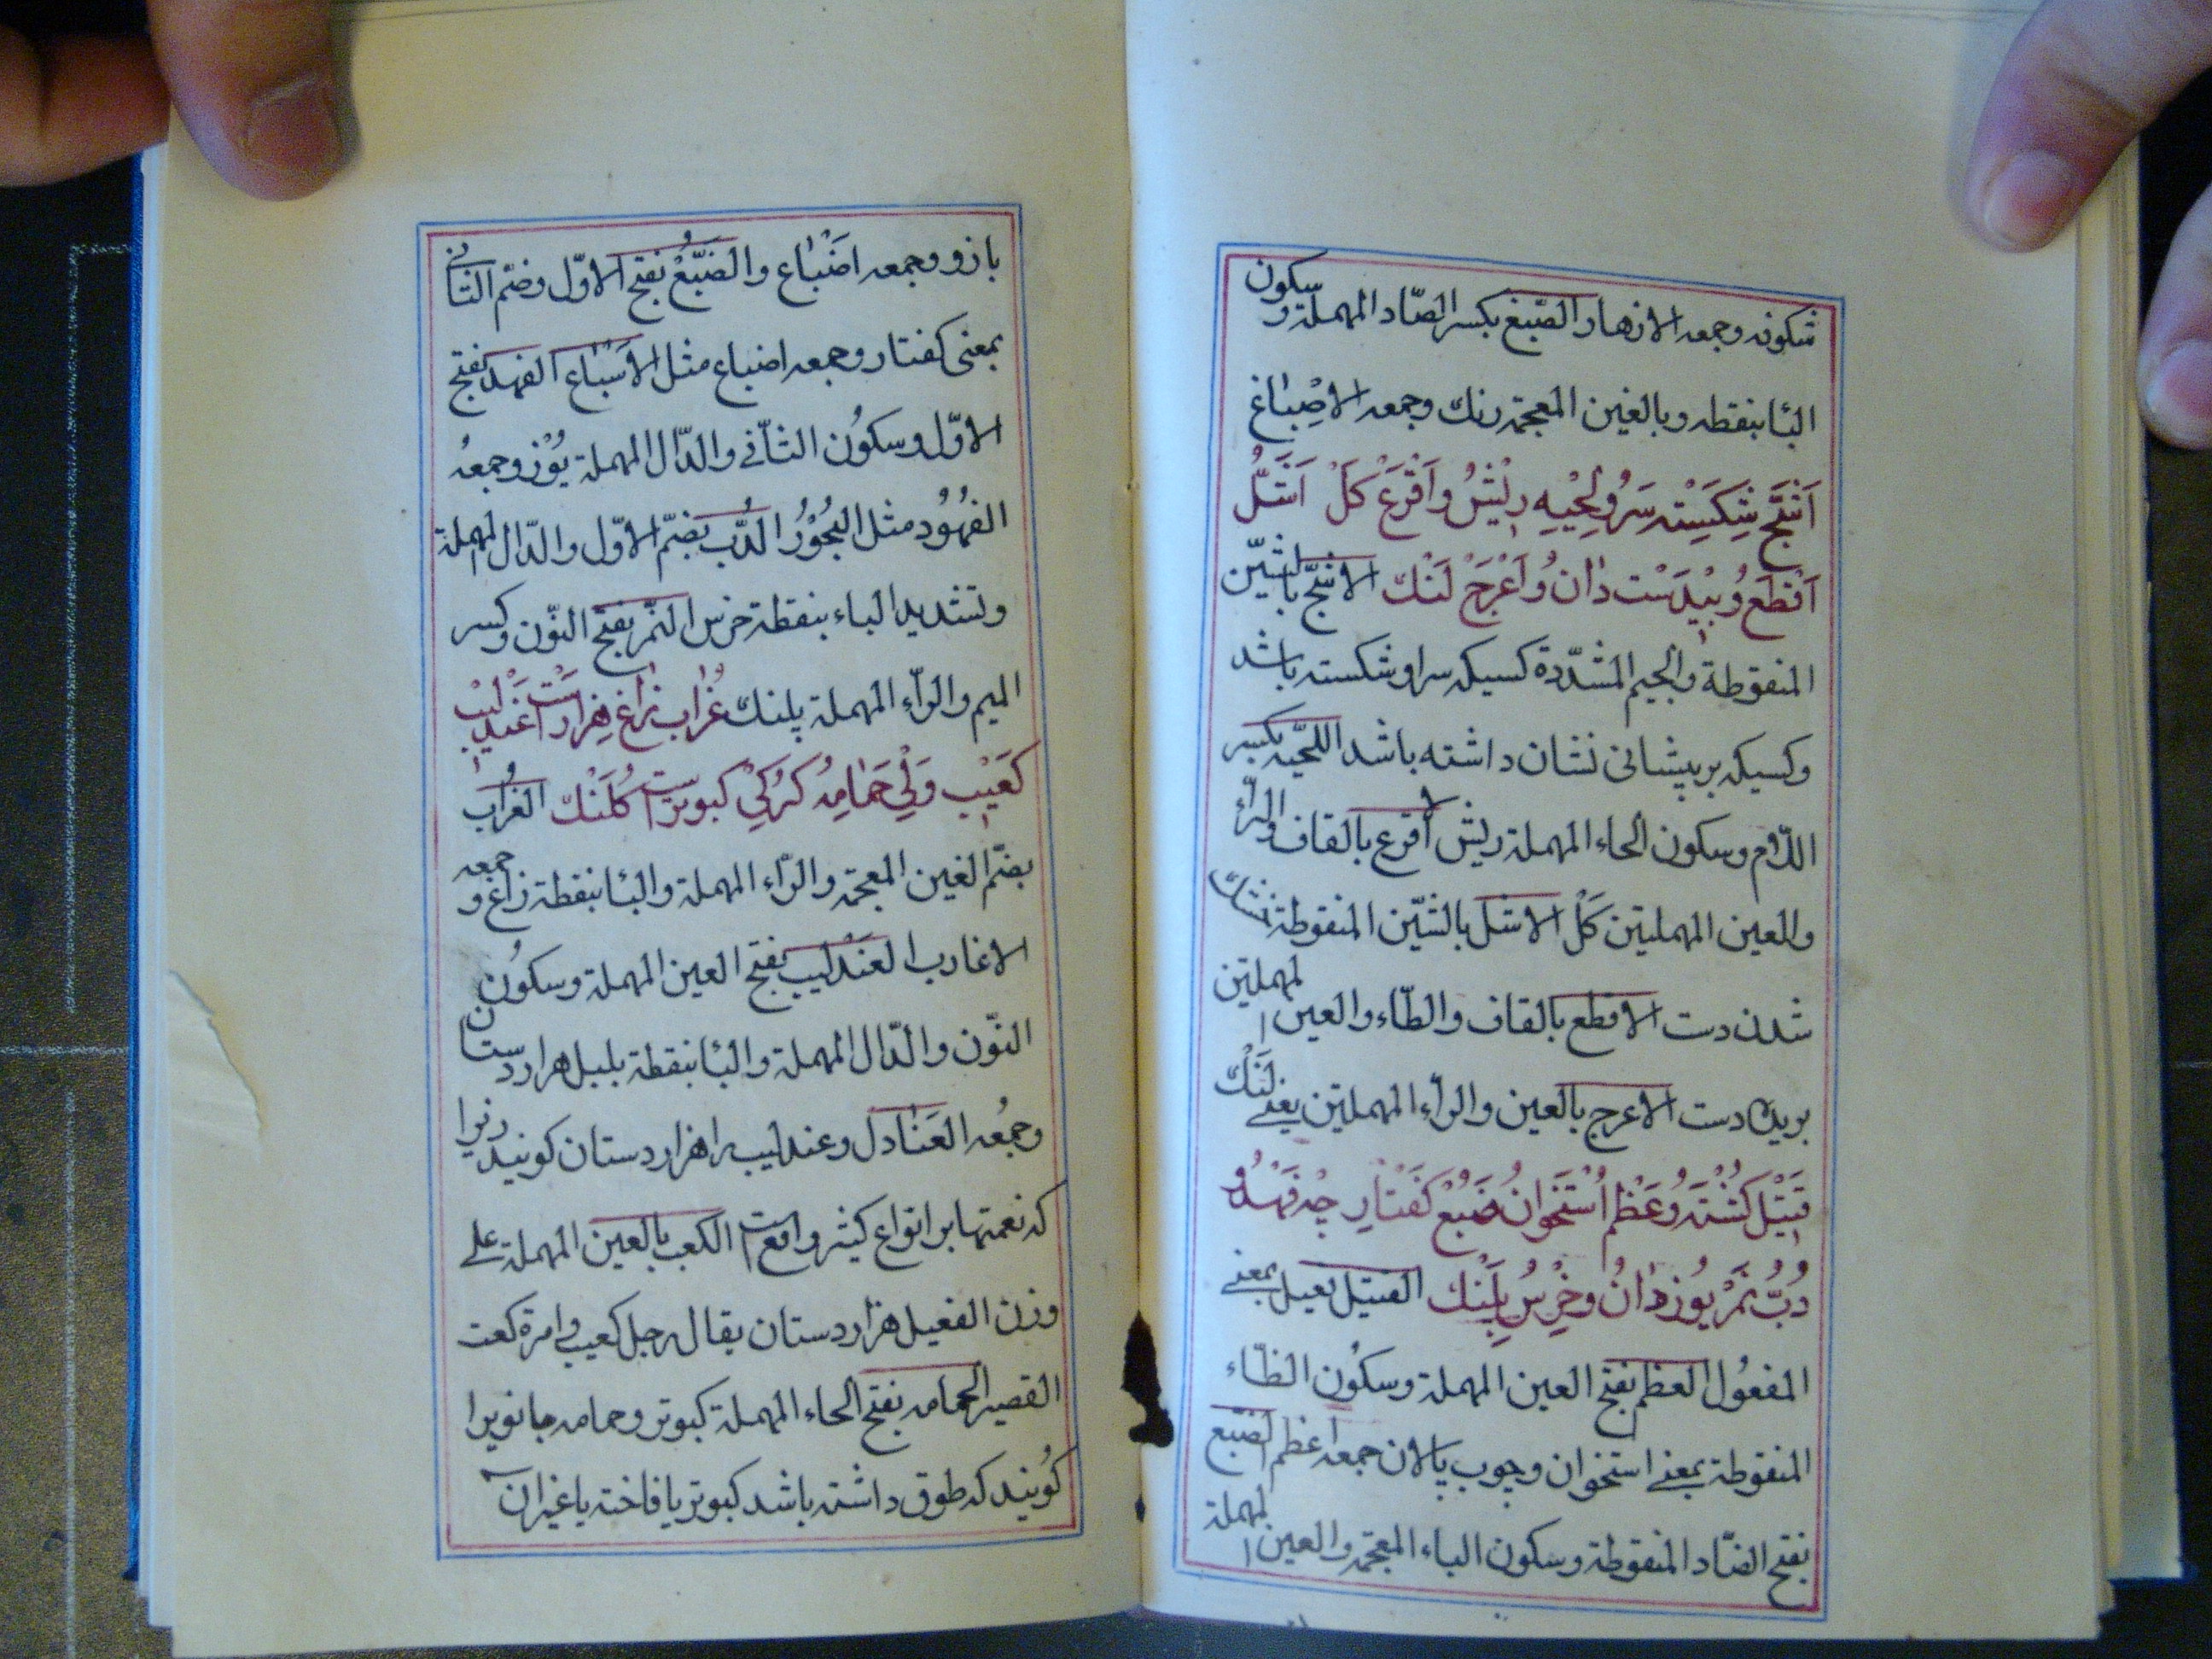 شکوفه وجمعه الازهار الصّبغ بکسر الصّاد المهملة و سکون
البا بنقطه وبالغین المعجمة رنك وجمعه الاصْبٰاغ
اَشَجّ شِکَسِتْه سَرُو لِحْیَه رِیْشُ واَقْرَعْ کَلْ اَشَلُّ
اَقْطَع وُ بیْدَسْت دٰان وُ اَعْرَجْ لَنْك الاشجّ بالشّین
المنقوطة والجیم المشدّدة کسیکه سر او شکسته باشد
وکسیکه بر پیشانی نشان داشته باشد اللحیّه بکسر
اللّام وسکون الحاء المهملة ریش الاقرع بالقاف والرّاء
والعین المهملتین کَلْ الاشل بالشّین المنقوطة خشك
شدن دست الاقطع بالقاف والطّاء والعین المهملتین
بریده دست الاعرج بالعین والرّاء المهملتین یعنے لَنْك
قَتیْل کشْتَه وُ عَظْم اُسْتَخوانُ ضَبُعْ کَفْتٰارِ چه فَهْدُ و
دُبُّ نَمْر یُوز دٰانُ و خِرْسُ پَلَنْك القتیل فعیل بمعنے
المفعُول العظم بفتح العین المهملة وسکُون الظّاء
المنقوطة بمعنے استخوان وچوب پالان جمعه اعظم الضبّع
بفتح الضّاد المنقوطة وسکون الباء المعجمة والعین المهملة
بازو وجمعه اضْبٰاع والضبّعْ بفتح الاوّل وضمّ الثّانے
بمعنی کفتار وجمعه اضباع مثل الاَسْباع الفهد بفتح
الاوّل وسکُون الثّانے والدّال المهملة یُوْز وجمعهُ
الفهُوُد مثل البُحُوْرُ الدُّب بضمّ الاوّل والدّال المهملة
وتشدید الباء بنقطة خرس النّمر بفتح النّون وکسر
المیم والرّاء المهملة پلنك غُرٰاب زٰاغ هِزار دست عَنْدَلیْب
کعَیْب وَلْیِ حَمٰامِه کُرْکیِ کبوتر است کُلَنْك الغراب
بضمّ الغین المعجمة والرّاء المهملة والبا بنقطة زاغ و جمعه
الاغارب العَنْدَلیب بفتح العین المهملة وسکُون
النّون والدّال المهملة والبا بنقطة بلبل هزار دستان
وجمعُه العَنٰادل وعندلیب را هزار دستان کویند زیرا
که نغمتها بر انواع کثیر واقع است الکعب بالعین المهملة علے
وزن الفعیل هزار دستان یقال رجل کعیب وامرة کعت
القصیر الحمامه بفتح الحاء المهملة کبوتر وحمامه جانوریرا
کوُیند که طوق داشته باشد کبوتر یا فاخته یا غیر آن